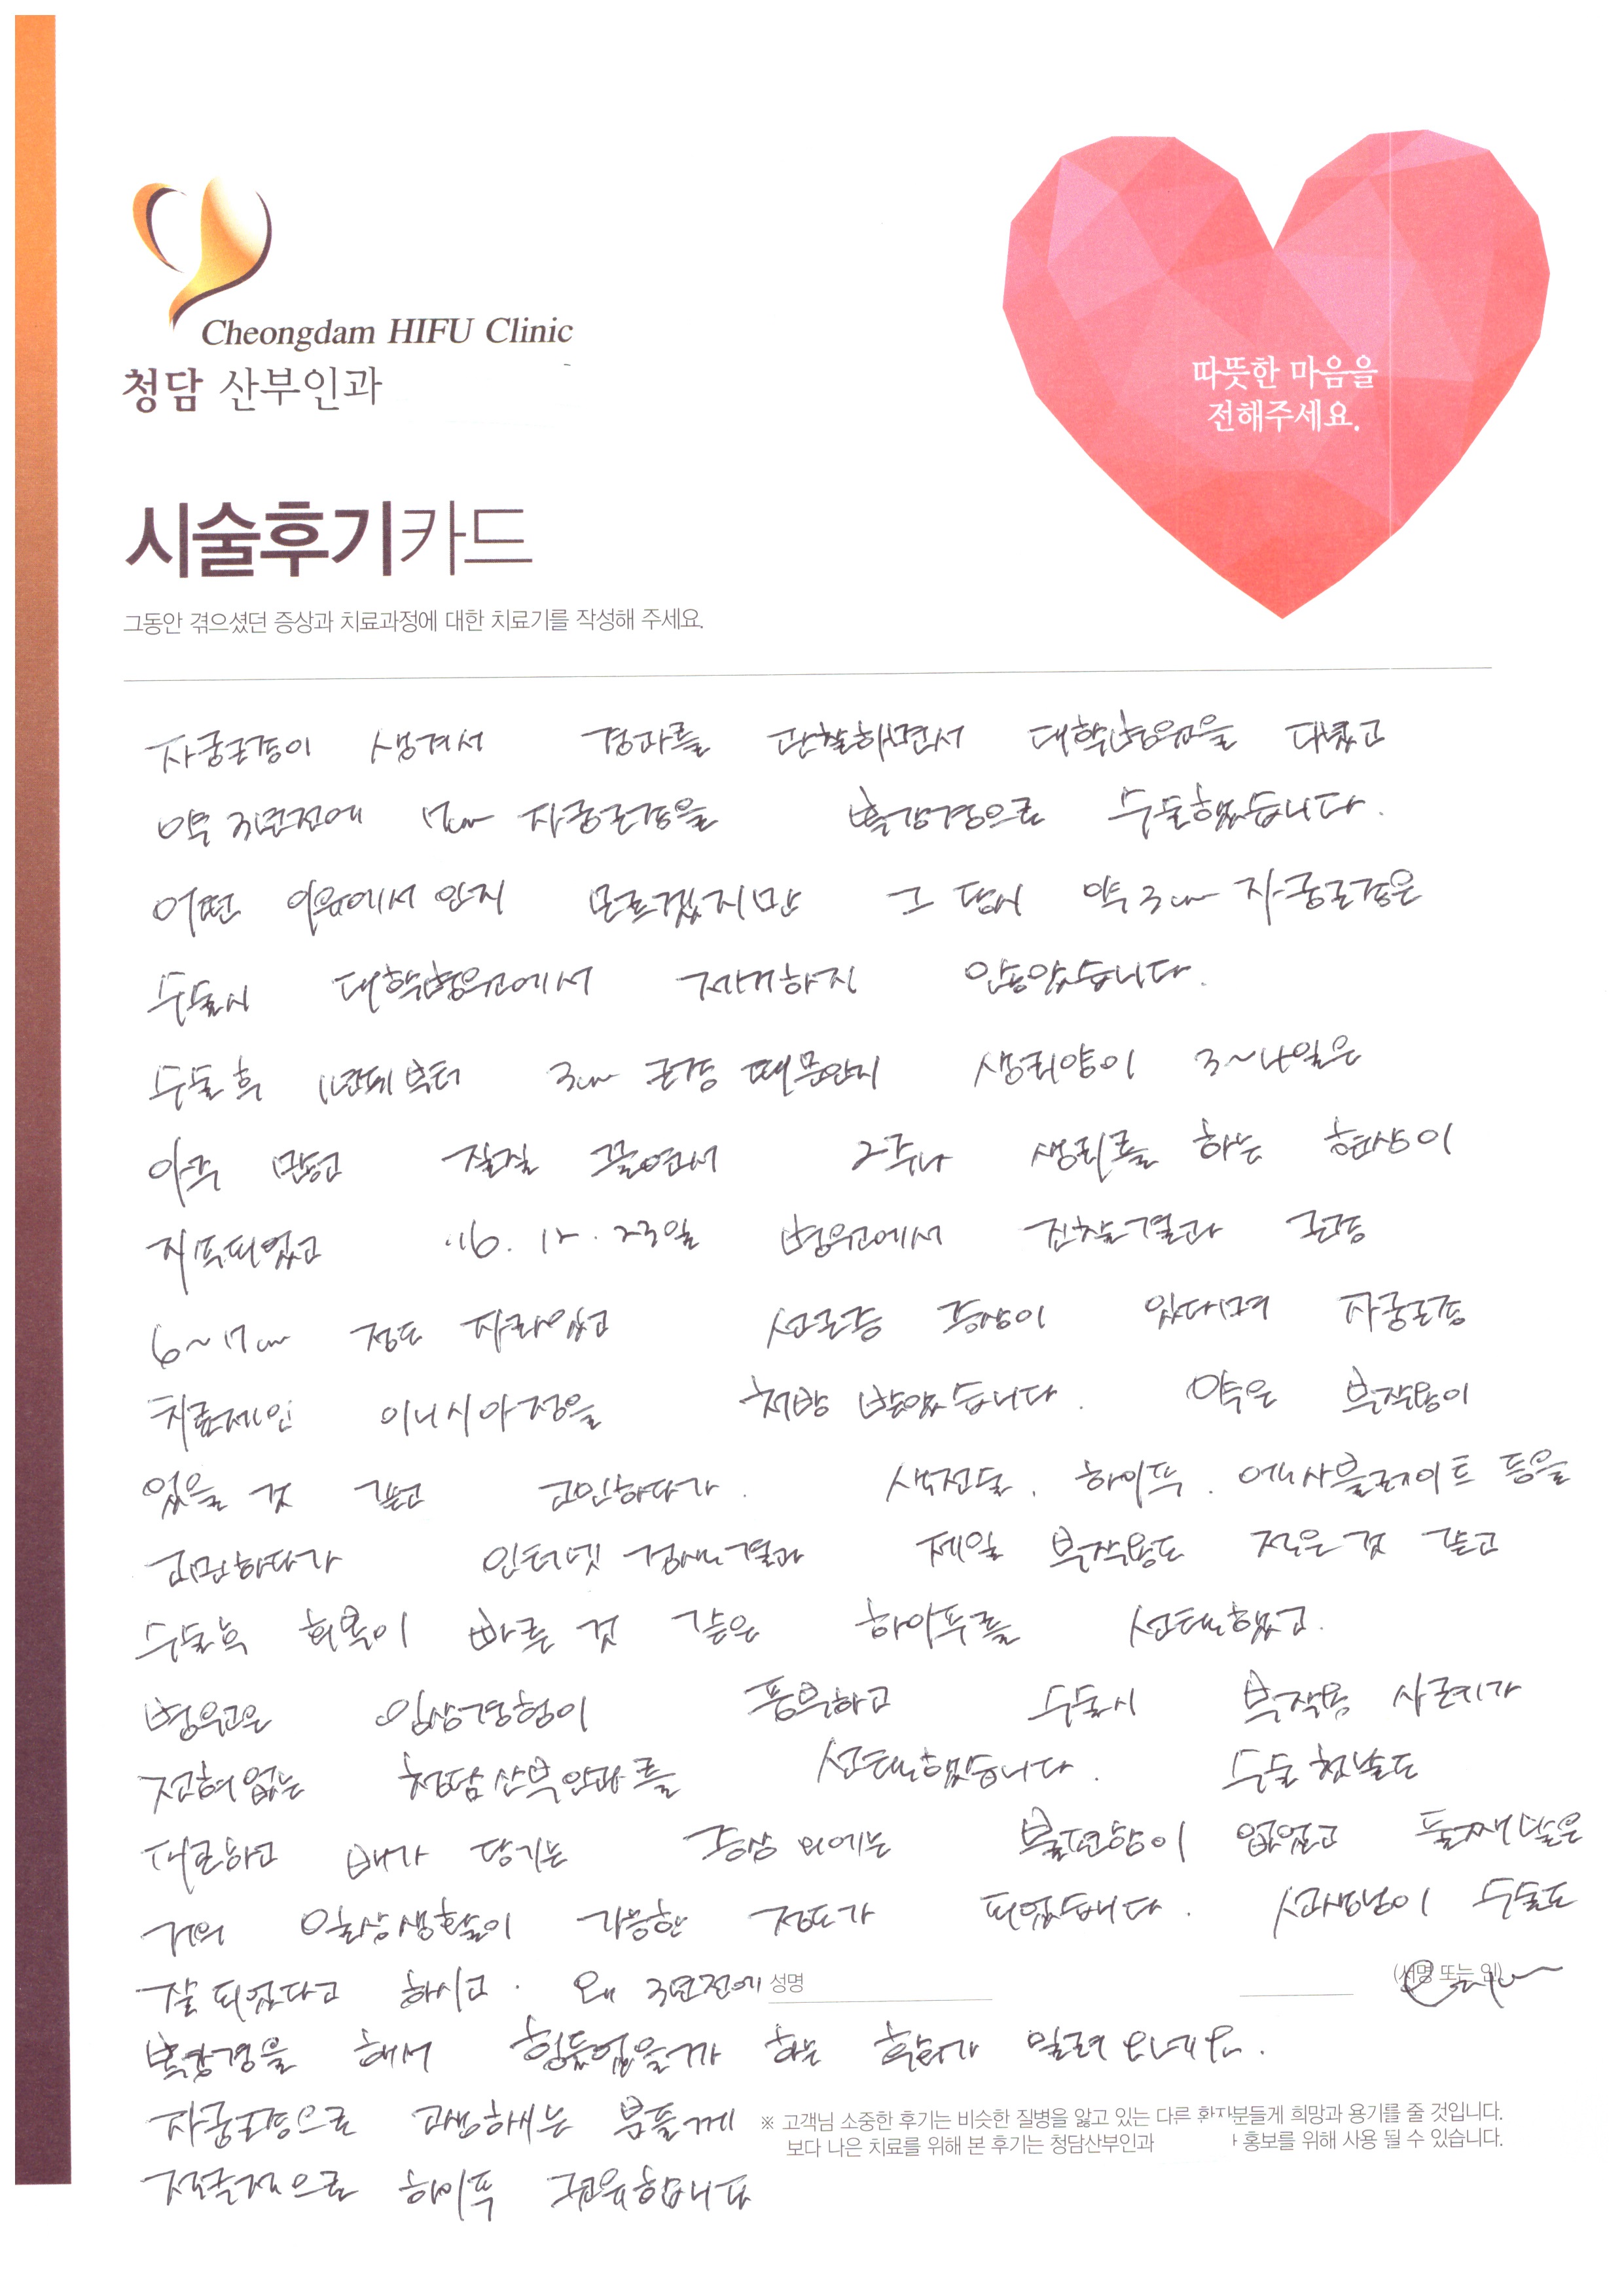 Cheongdam HIFU Clinic
청담 산부인과
따뜻한 마음을
전해주세요.
시술후기카드
그동안 겪으셨던 증상과 치료과정에 대한 치료기를 작성해 주세요.
자궁근종이 생겨서 경과를 관찰하면서 대학병원을 다녔고
약 3년전에 7cm 자궁근종을 복강경으로 수술했습니다.
어떤 이유에서 인지 모르겠지만 그 당시 약 3cm 자궁근종은
수술시 대학병원에서 제거하지 않았습니다.
수술후 1년째부터 3cm 근종 때문인지 생리양이 3~4일은
아주 많고 질질 끌면서 2주나 생리를 하는 현상이
지속되었고 '16. 12. 23일 병원에서 진찰결과 근종
6~7cm 정도 자라있고 선근증 증상이 있다며 자궁근종
치료제인 이니시아정을 처방 받았습니다. 약은 부작용이
있을 것 같고 고민하다가. 색전술, 하이푸, 어블레이트 등을
고민하다가 인터넷 검색결과 제일 부작용도 적은 것 같고
수술후 회복이 빠른 것 같은 하이푸를 선택했고.
병원은 임상경험이 풍부하고 수술시 부작용 사례가
전혀없는 청담산부인과를 선택했습니다. 수술 첫날도
배가 당기는 증상 외에는 불편함이 없었고 둘째날은
거의 일상생활이 가능한 정도가 되었습니다. 선생님이 수술도
잘 되었다고 하시고. 왜 3년전에
성명
(서명 또는 인)
복강경을 해서 힘들었을까 하는 후회가 밀려
자궁근종으로 고생하시는 분들께
※ 고객님 소중한 후기는 비슷한 질병을 앓고 있는 다른 환자분들게 희망과 용기를 줄 것입니다.
보다 나은 치료를 위해 본 후기는 청담산부인과 홍보를 위해 사용 될 수 있습니다.
적극적으로 하이푸 권유합니다